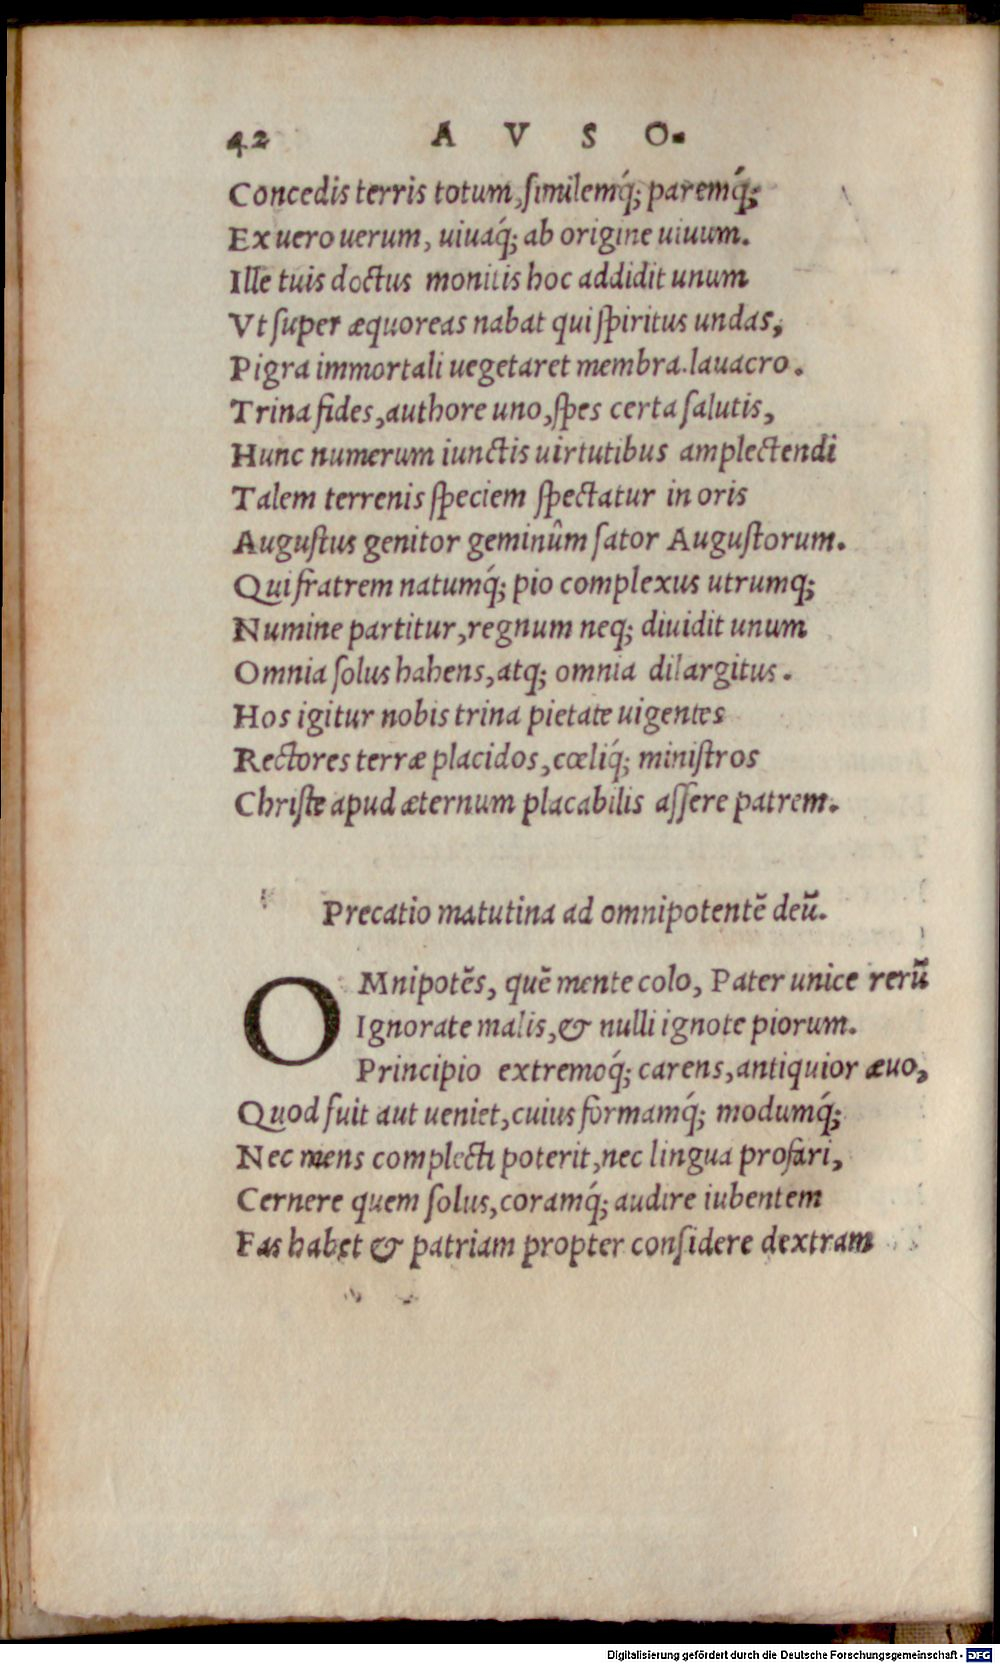 42 A V S O.
Concedis terris totum, ſimilemq́; paremq́;
Ex uero uerum, uiuaq́; ab origine uiuum.
Ille tuis doctus monitis hoc addidit unum
Vt ſuper æquoreas nabat qui ſpiritus undas,
Pigra immortali uegetaret membra lauacro.
Trina fides, authore uno, ſpes certa ſalutis,
Hunc numerum iunctis uirtutibus amplectendi
Talem terrenis ſpeciem ſpectatur in oris
Auguſtus genitor geminûm ſator Auguſtorum.
Qui fratrem natumq́; pio complexus utrumq;
Numine partitur, regnum neq; diuidit unum
Omnia ſolus habens, atq; omnia dilargitus.
Hos igitur nobis trina pietate uigentes
Rectores terræ placidos, cœliq́; miniſtros
Chriſte apud æternum placabilis aſſere patrem.
Precatio matutina ad omnipotentē deū.
OMnipotēs, quē mente colo, Pater unice rerū
Ignorate malis, & nulli ignote piorum.
Principio extremoq́; carens, antiquior æuo,
Quod fuit aut ueniet, cuius formamq́; modumq́;
Nec mens complecti poterit, nec lingua profari,
Cernere quem ſolus, coramq́; audire iubentem
Fas habet & patriam propter conſidere dextram
Digitalisierung gefördert durch die Deutsche Forschungsgemeinschaft - DFG